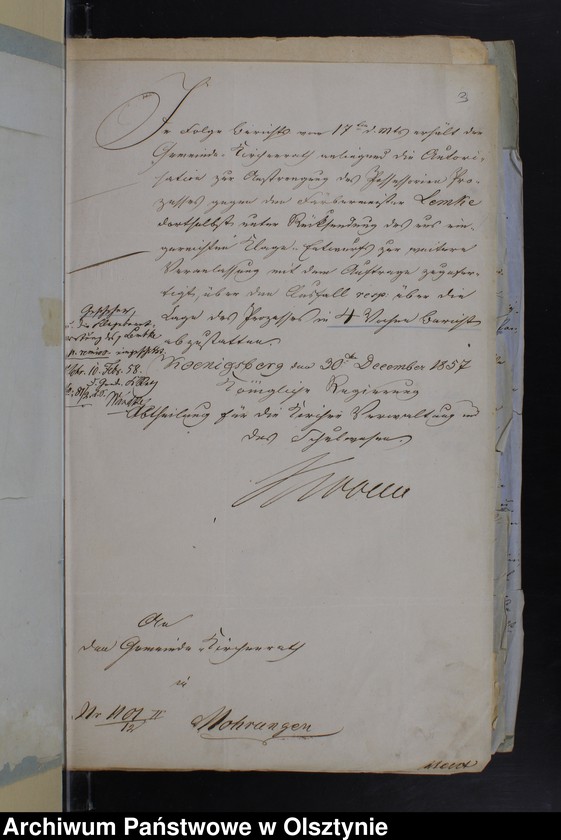 3
In Folge Berichts vom 17ten d. Mts erhält der
Gemeinde-Kirchenrath anliegend die Autori-
sation zur Anstrengung des Possessorien Pro-
zesses gegen den Färbermeister Lemke
dortselbst unter Rücksendung des uns ein-
gereichten Klage-Entwurfs zur weitern
Veranlassung mit dem Auftrage zugefer-
tigt, über den Ausfall resp. über die
Lage des Prozesses in 4 Wochen Bericht
abzustatten.
Koenigsberg den 30ten December 1857
Königliche Regierung
Abtheilung für die Kirchen Verwaltung und
das Schulwesen
10. Febr. 58.
An
den Gemeinde Kirchenrath
in
Mohrungen
Archiwum Państwowe w Olsztynie